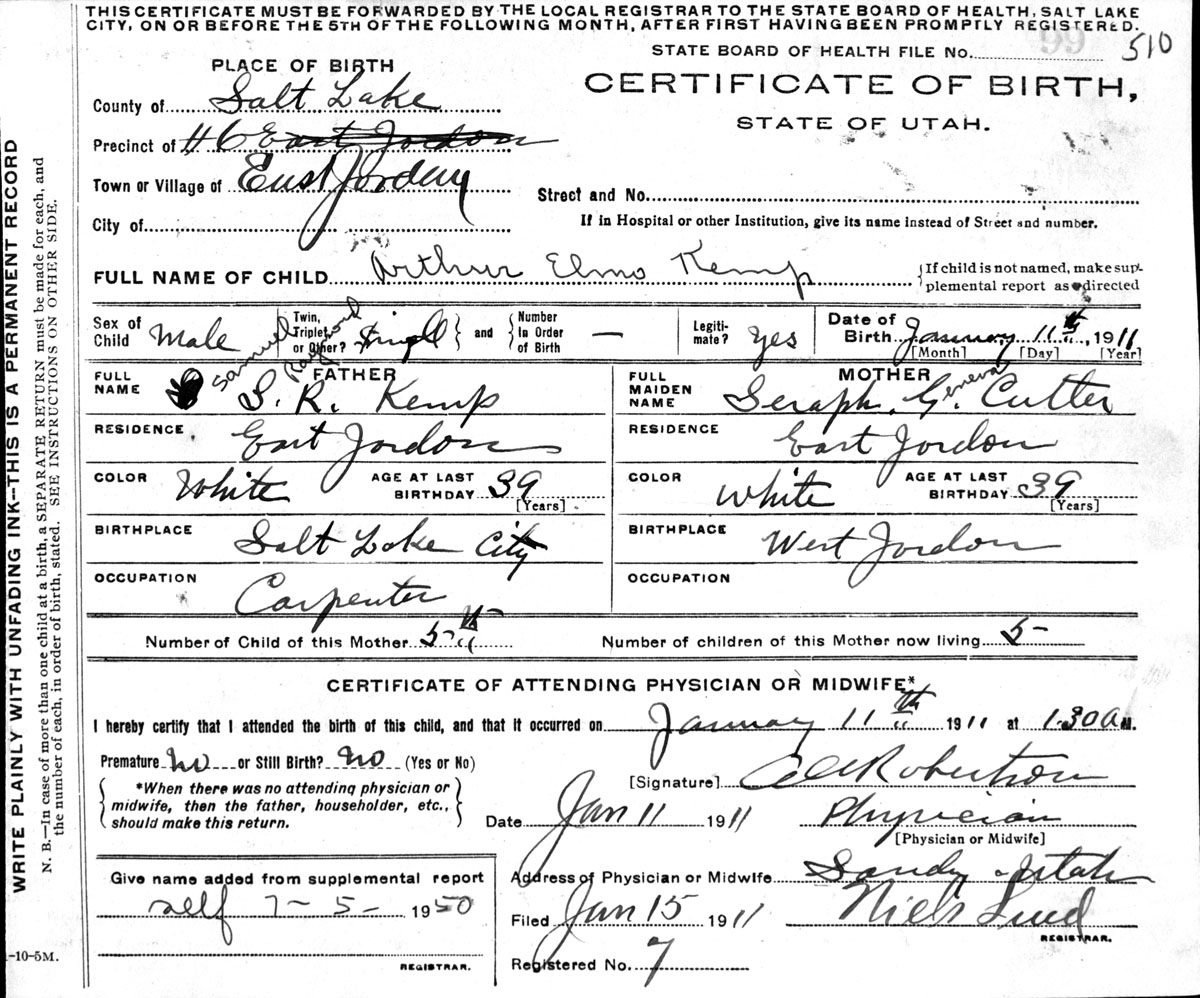 THIS CERTIFICATE MUST BE FORWARDED BY THE LOCAL REGISTRAR TO THE STATE BOARD OF HEALTH, SALT LAKE
CITY, ON OR BEFORE THE 5TH OF THE FOLLOWING MONTH, AFTER FIRST HAVING BEEN PROMPTLY REGISTERED.
STATE BOARD OF HEALTH FILE No. 99 510
PLACE OF BIRTH
CERTIFICATE OF BIRTH,
STATE OF UTAH.
County of Salt Lake
Precinct of #6 East Jordon
Town or Village of East Jordan
Street and No.
City of
If in Hospital or other Institution, give its name instead of Street and number.
FULL NAME OF CHILD Arthur Elmo Kemp {If child is not named, make sup-
plemental report as directed
Sex of Child Male
Twin, Triplet, or Other? Single } and { Number In Order of Birth —
Legiti-mate? Yes
Date of Birth January 11th, 1911
[Month] [Day] [Year]
FATHER
FULL NAME S. R. Kemp
Samuel Raymond
MOTHER
FULL MAIDEN NAME Seraph. G. Cutler
Geneva
RESIDENCE East Jordon
RESIDENCE East Jordon
COLOR White AGE AT LAST BIRTHDAY 39 [Years]
COLOR White AGE AT LAST BIRTHDAY 39 [Years]
BIRTHPLACE Salt Lake City
BIRTHPLACE West Jordon
OCCUPATION Carpenter
OCCUPATION
Number of Child of this Mother 5th
Number of children of this Mother now living 5
CERTIFICATE OF ATTENDING PHYSICIAN OR MIDWIFE*
I hereby certify that I attended the birth of this child, and that it occurred on January 11th 1911 at 1.30 A.M.
Premature No or Still Birth? No (Yes or No)
*When there was no attending physician or
midwife, then the father, householder, etc.,
should make this return.
[Signature] Robertson
Date Jan 11 1911 Physician
[Physician or Midwife]
Give name added from supplemental report
self 7-5- 1950
REGISTRAR.
Address of Physician or Midwife Sandy Utah
Filed Jan 15 1911 Niels Lind
REGISTRAR.
Registered No. 7
WRITE PLAINLY WITH UNFADING INK--THIS IS A PERMANENT RECORD
N. B.—In case of more than one child at a birth, a SEPARATE RETURN must be made for each, and
the number of each, in order of birth, stated. SEE INSTRUCTIONS ON OTHER SIDE.
-10-5M.